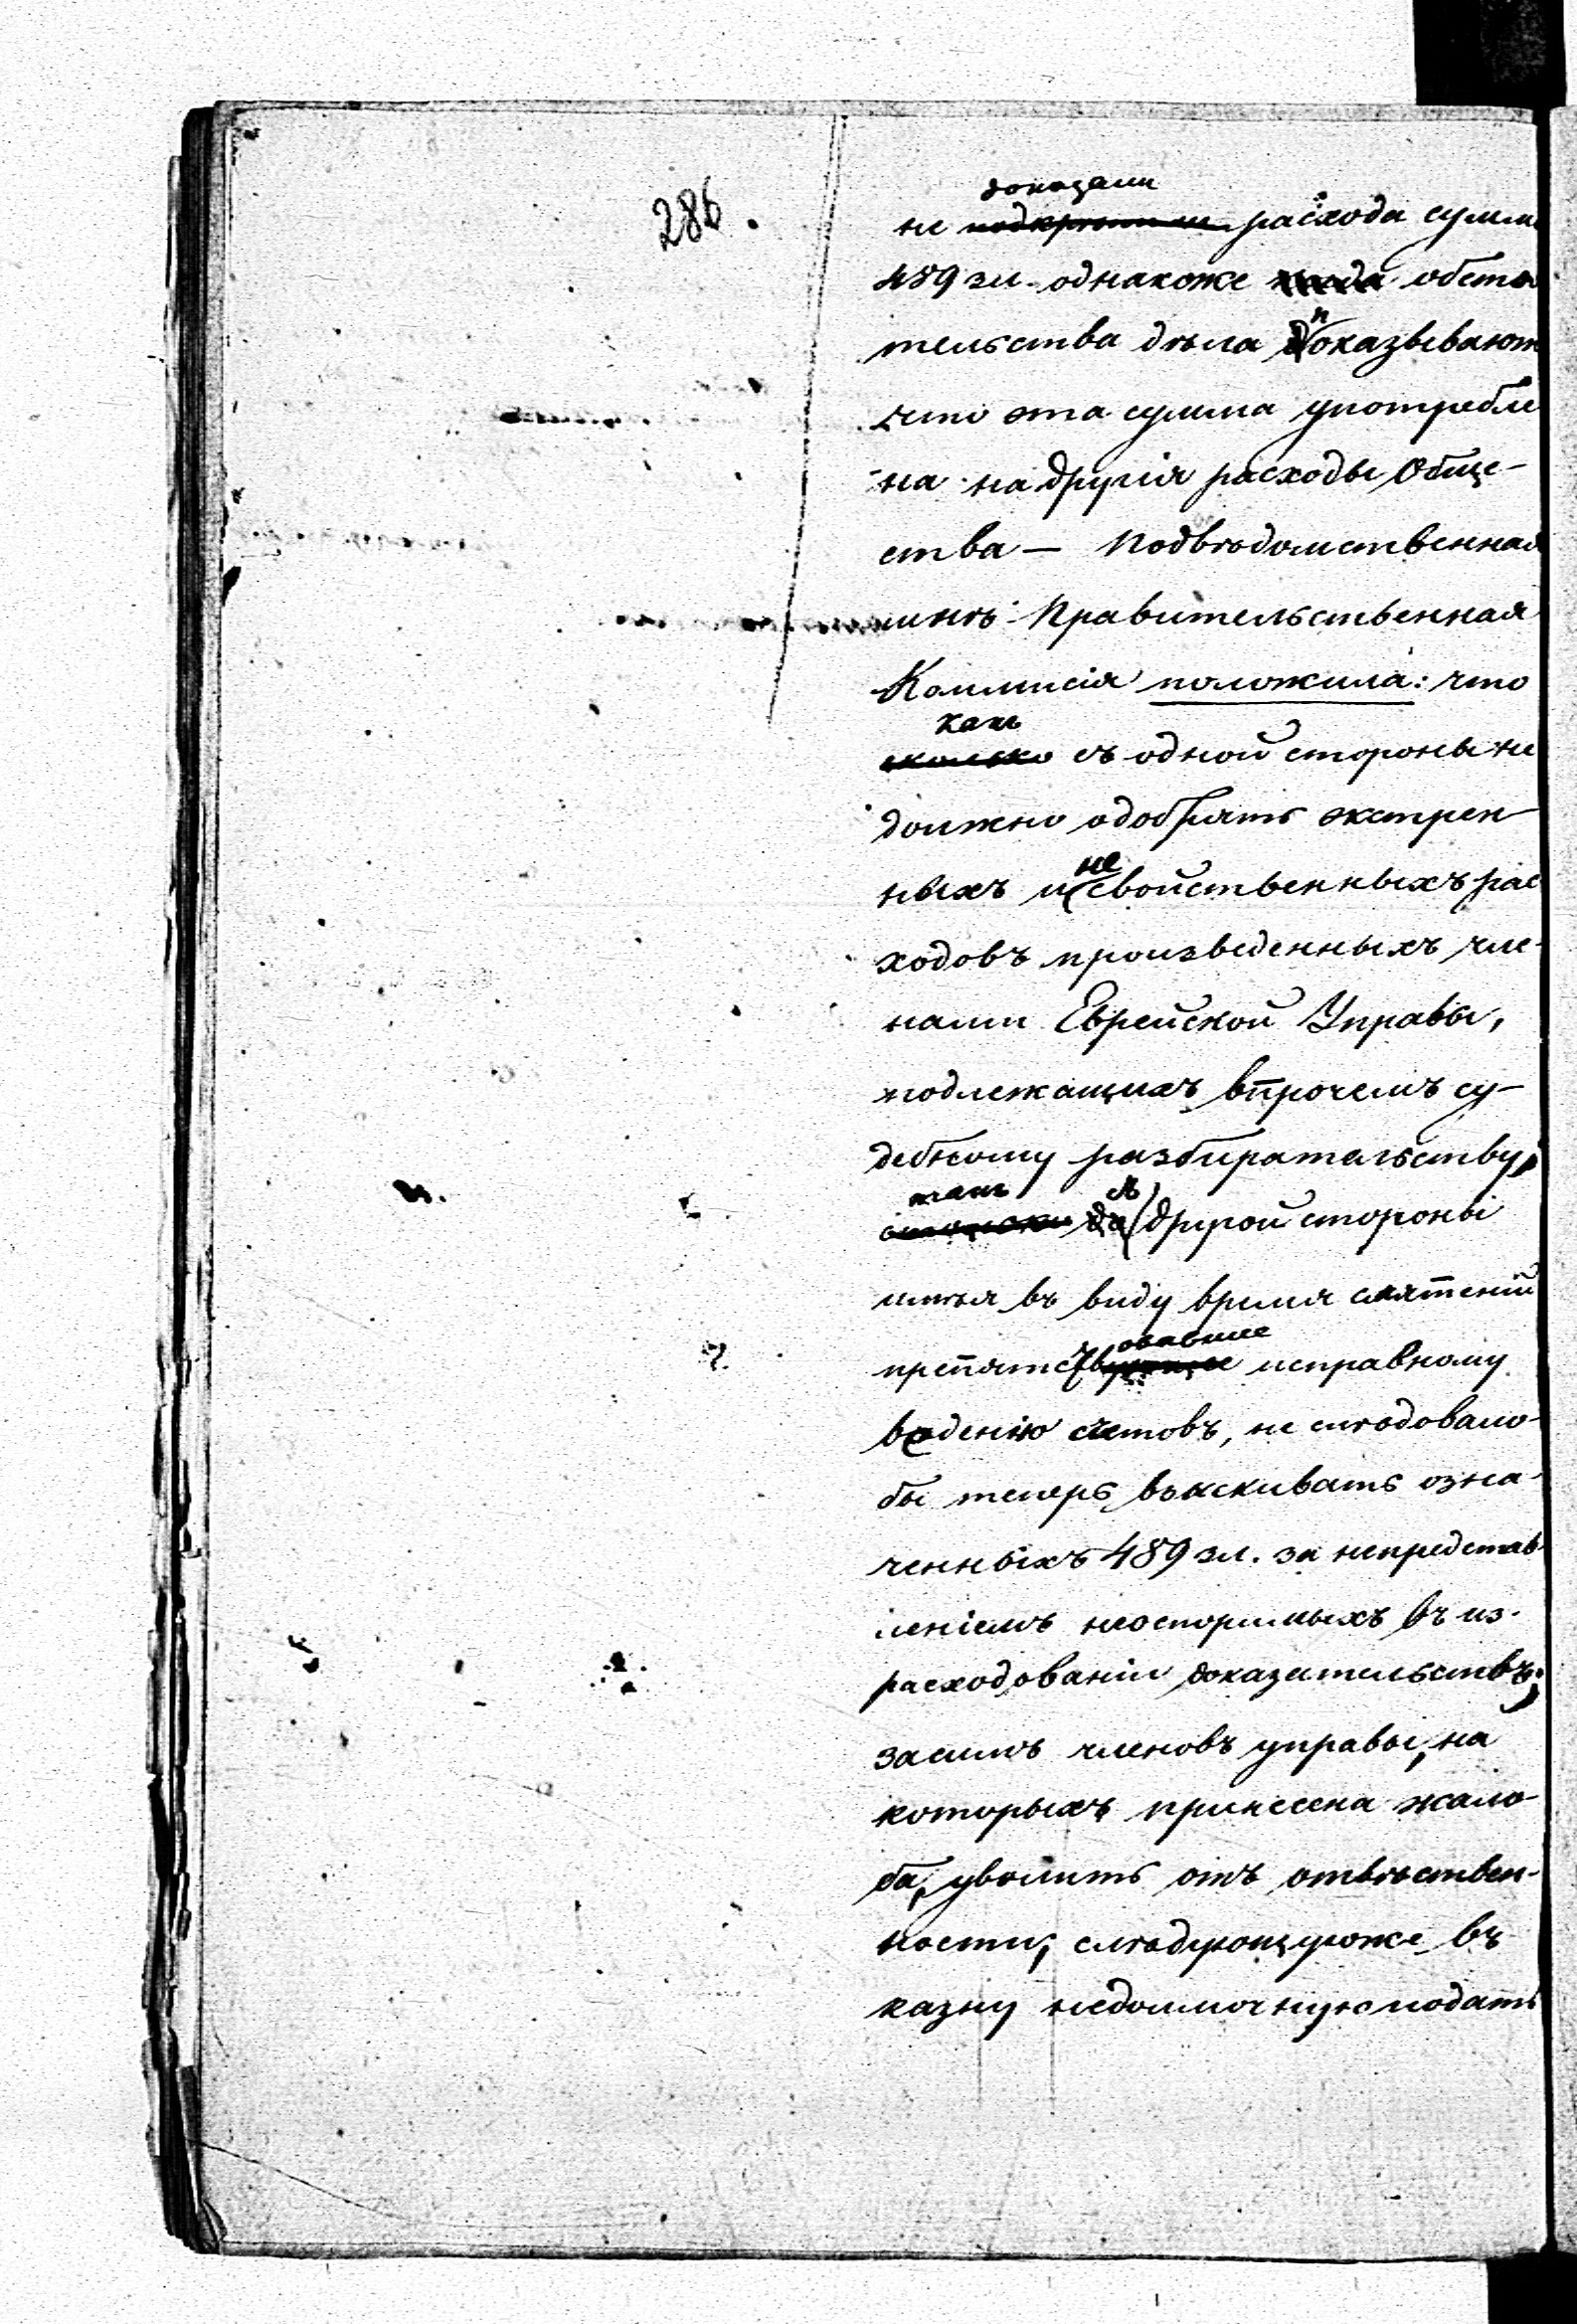 286.
доказали
не подкрепили расхода суммы
489 зл. однакоже обстоя
тельства дѣла показывают
что эта сумма употребле
на на другія расходы Обще-
ства — Подвѣдомственная
мнѣ Правительственная
Коммисія положила: что
какъ
сколько съ одной стороны не
должно одобрять экстрен-
ныхъ и несвойственныхъ рас
ходовъ произведенныхъ чле-
нами Еврейской Управы,
подлежащихъ впрочемъ су-
дебному разбирательству,
такъ съ
другой стороны
имѣя въ виду время смятеній
овавшее
препятствующее исправному
веденію счетовъ, не слѣдовало-
бы теперь взыскивать озна-
ченныхъ 489 зл. за непредстав-
леніемъ неоспоримыхъ въ из-
расходованіи доказательствъ;
засимъ членовъ управы, на
которыхъ принесена жало-
ба, уволить отъ отвѣтствен-
ности, слѣдующуюже въ
казну недоимочную подать